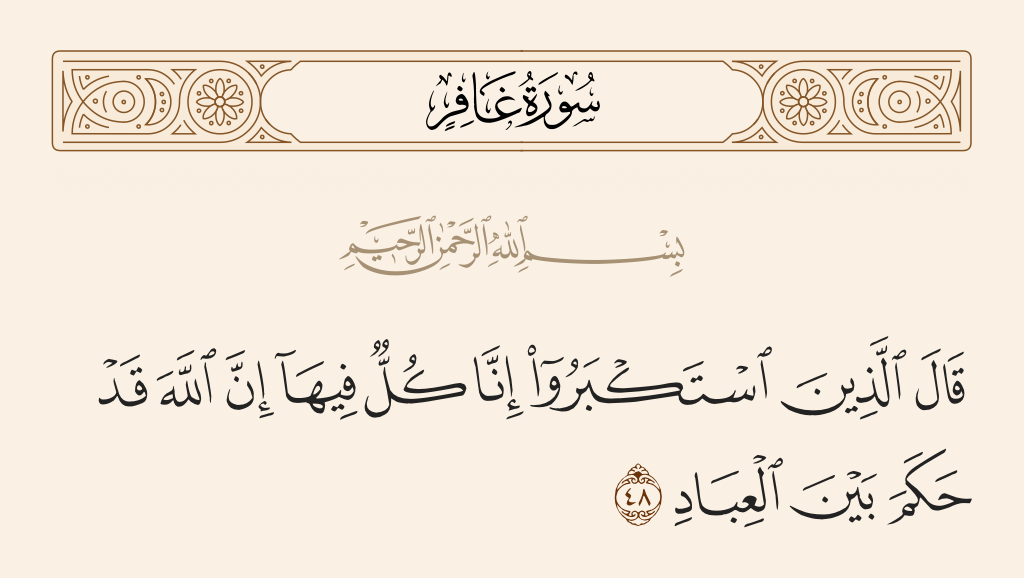 سُورَةُ غَافِرٍ
بِسْمِ ٱللَّهِ ٱلرَّحْمَٰنِ ٱلرَّحِيمِ
قَالَ ٱلَّذِينَ ٱسْتَكْبَرُوٓا۟ إِنَّا كُلٌّ فِيهَآ إِنَّ ٱللَّهَ قَدْ
حَكَمَ بَيْنَ ٱلْعِبَادِ ٤٨